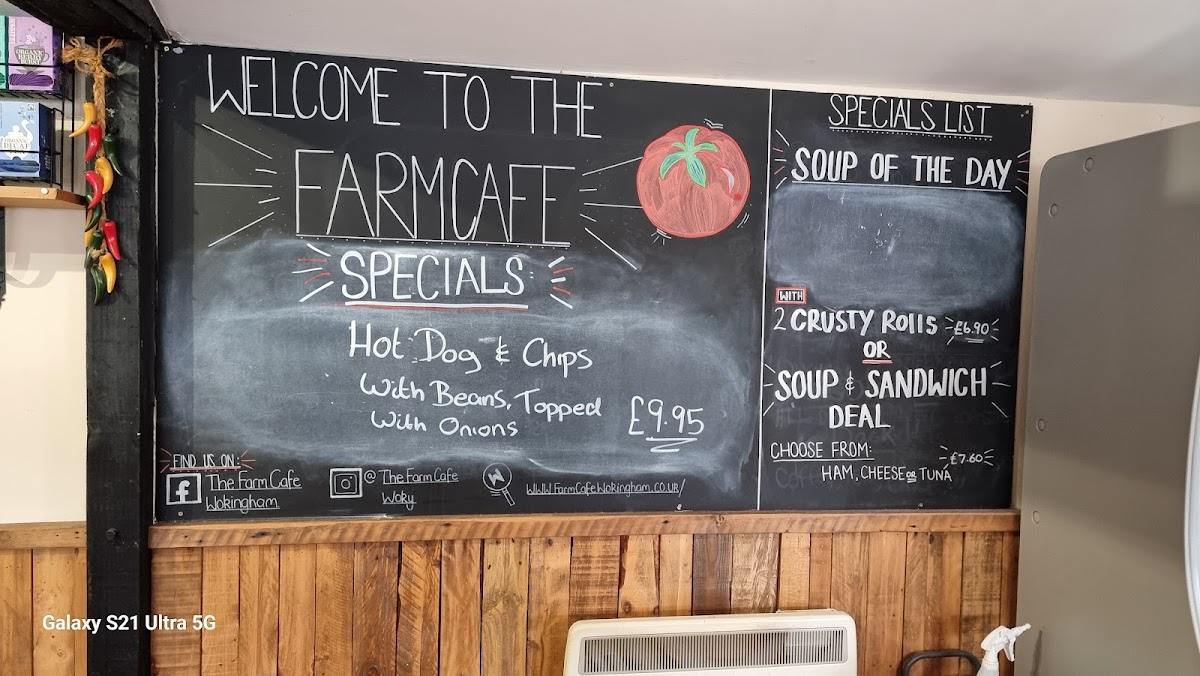 WELCOME TO THE
FARMCAFE
SPECIALS:
Hot Dog & Chips
With Beans, Topped
With Onions
£9.95
FIND US ON:
The Farm Cafe
Wokingham
@ The Farm Cafe
Woky
WWW.FarmCafeWokingham.co.uk/
SPECIALS LIST
SOUP OF THE DAY
WITH
2 CRUSTY ROLLS £6.90
OR
SOUP & SANDWICH
DEAL
CHOOSE FROM: £7.60
HAM, CHEESE OR TUNA
ORGANIC
BERRY
BURST
ORGANIC
DECAF
Galaxy S21 Ultra 5G